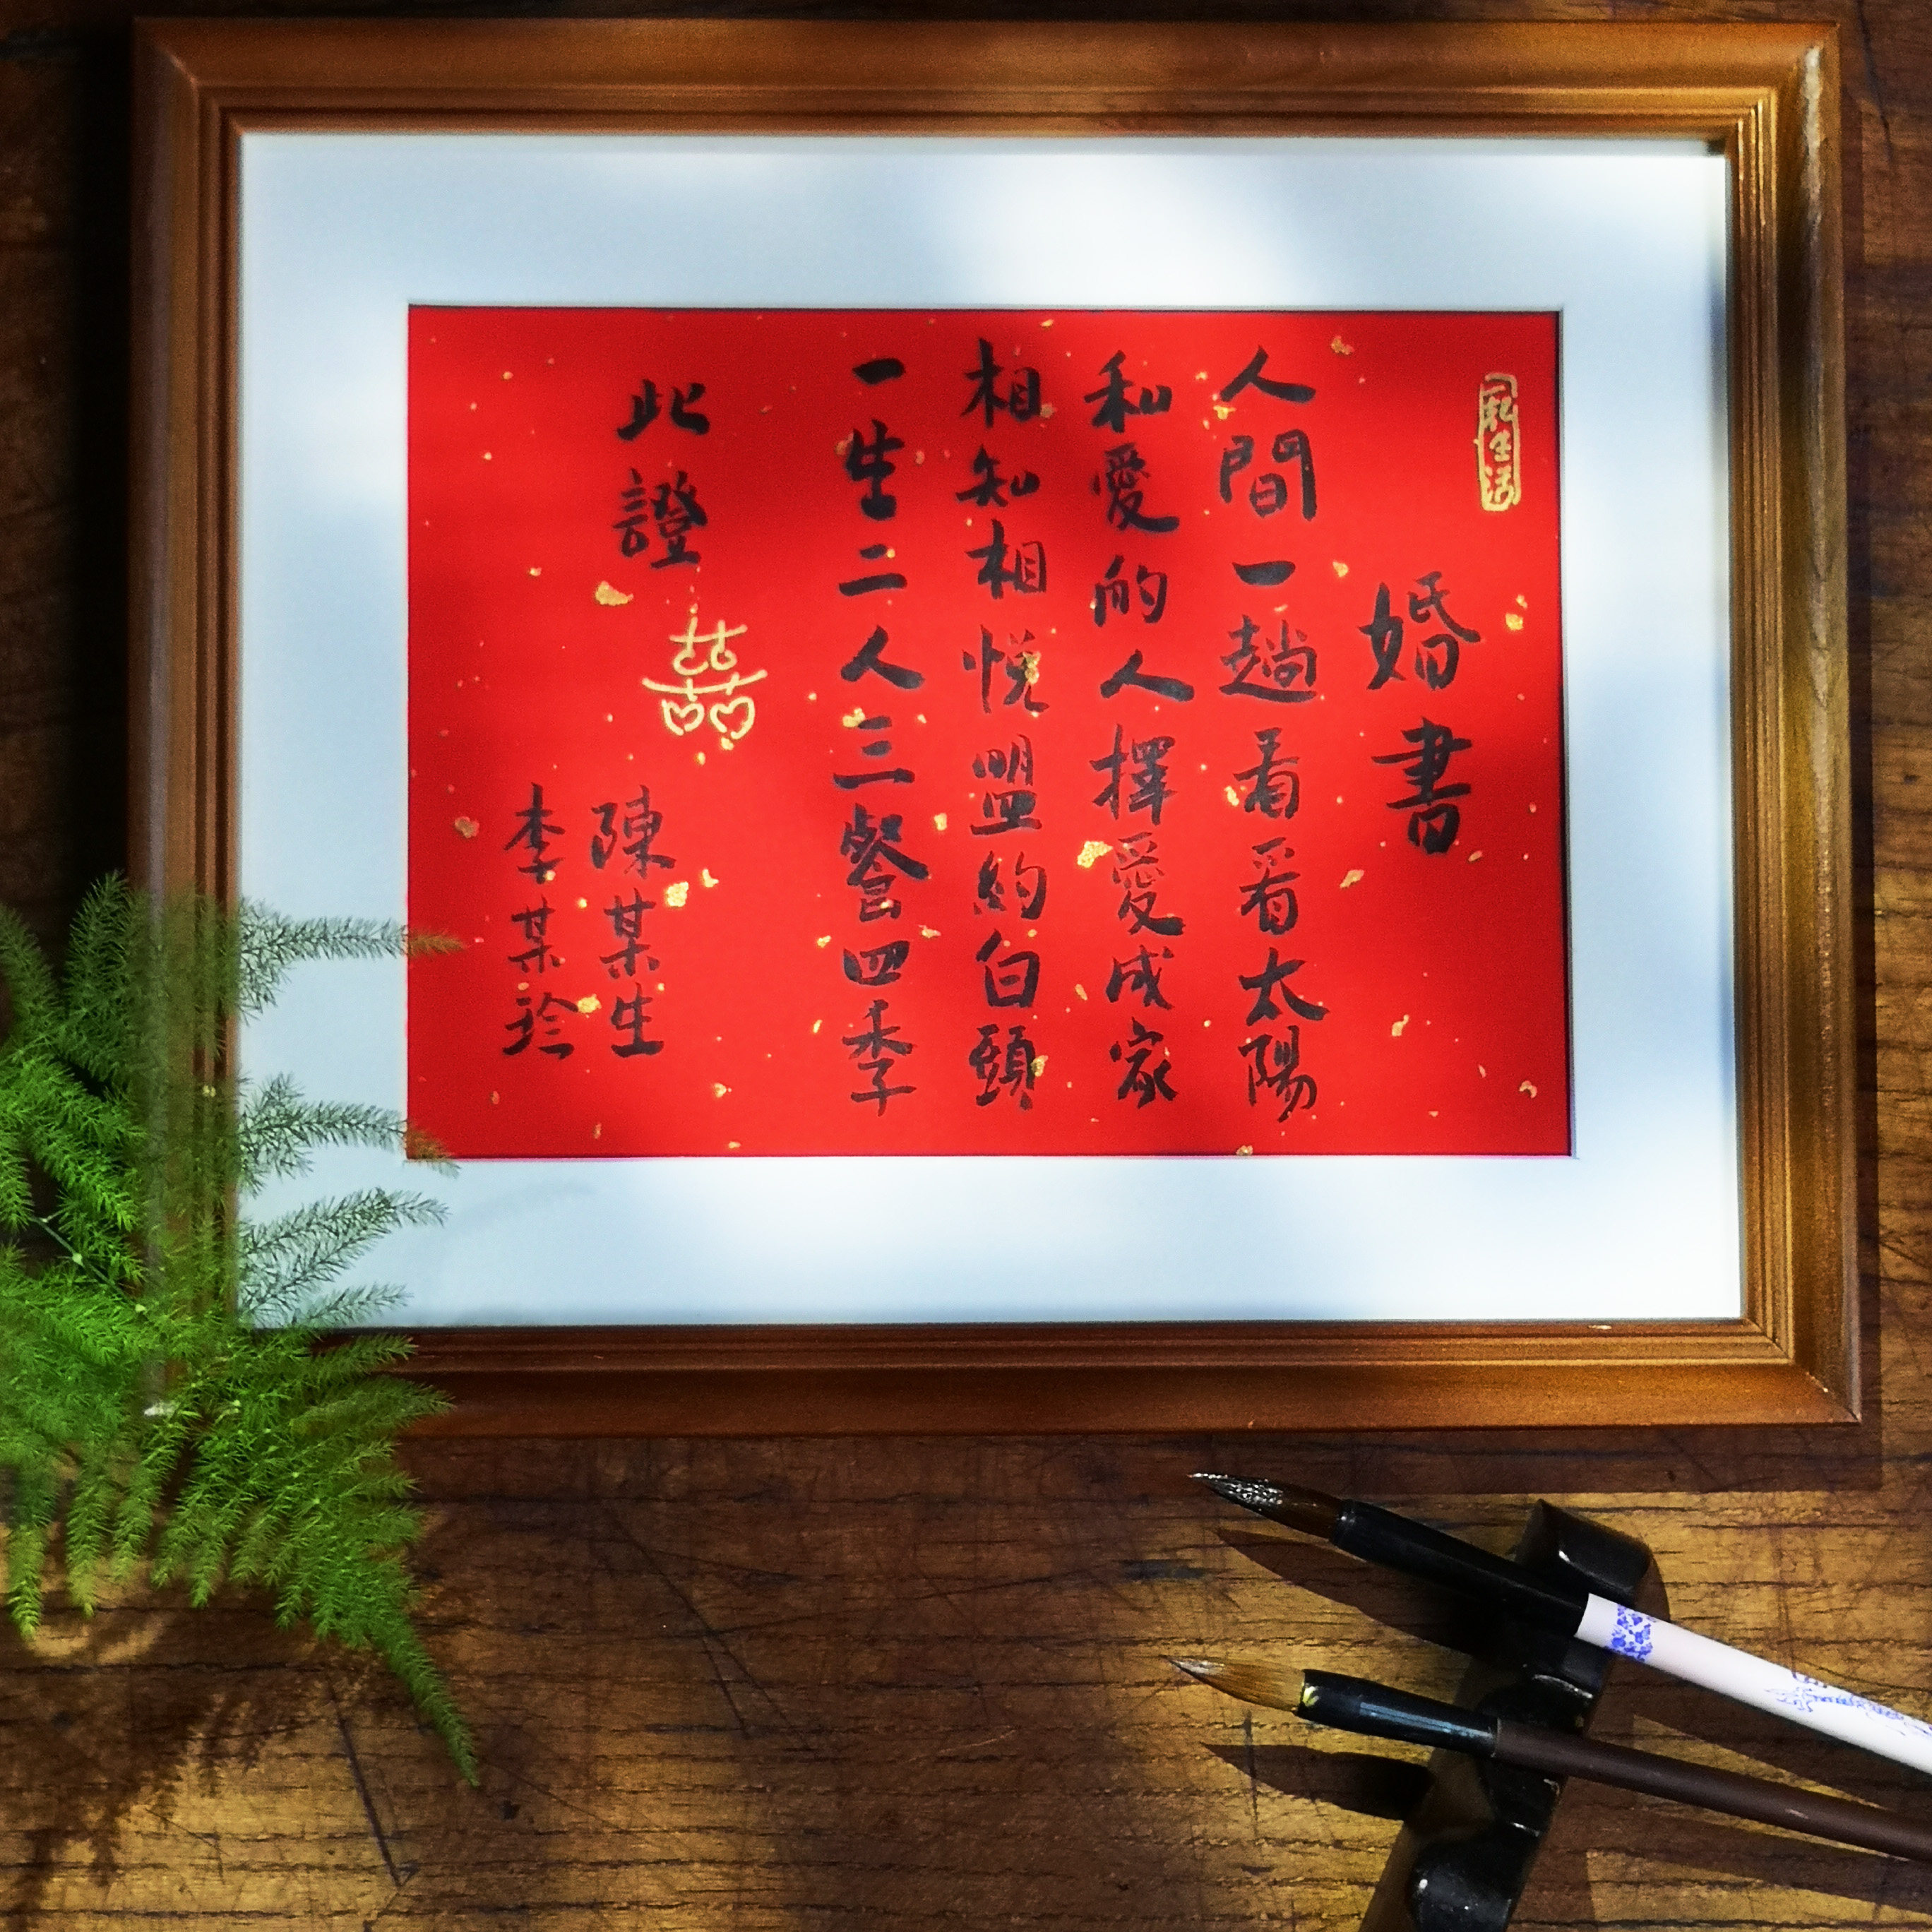 婚書
人間一趟看看太陽
和愛的人擇愛成家
相知相悅盟約白頭
一生二人三餐四季
此證
囍
陳某生
李某珍